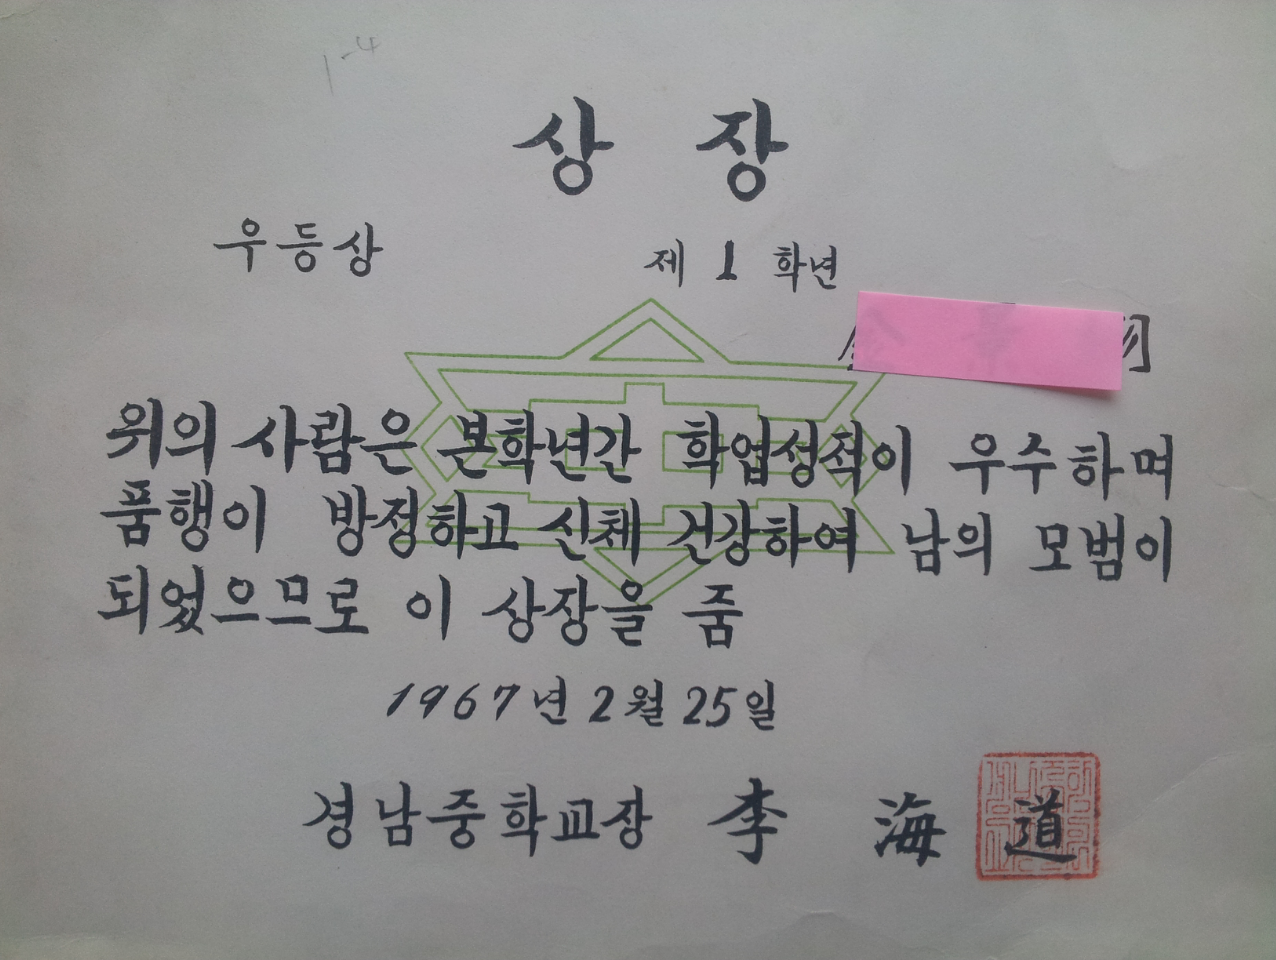 1-4
상 장
우등상 제 1 학년
위의 사람은 본학년간 학업성적이 우수하며
품행이 방정하고 신체 건강하여 남의 모범이
되었으므로 이 상장을 줌
1967년 2월 25일
경남중학교장 李 海 道